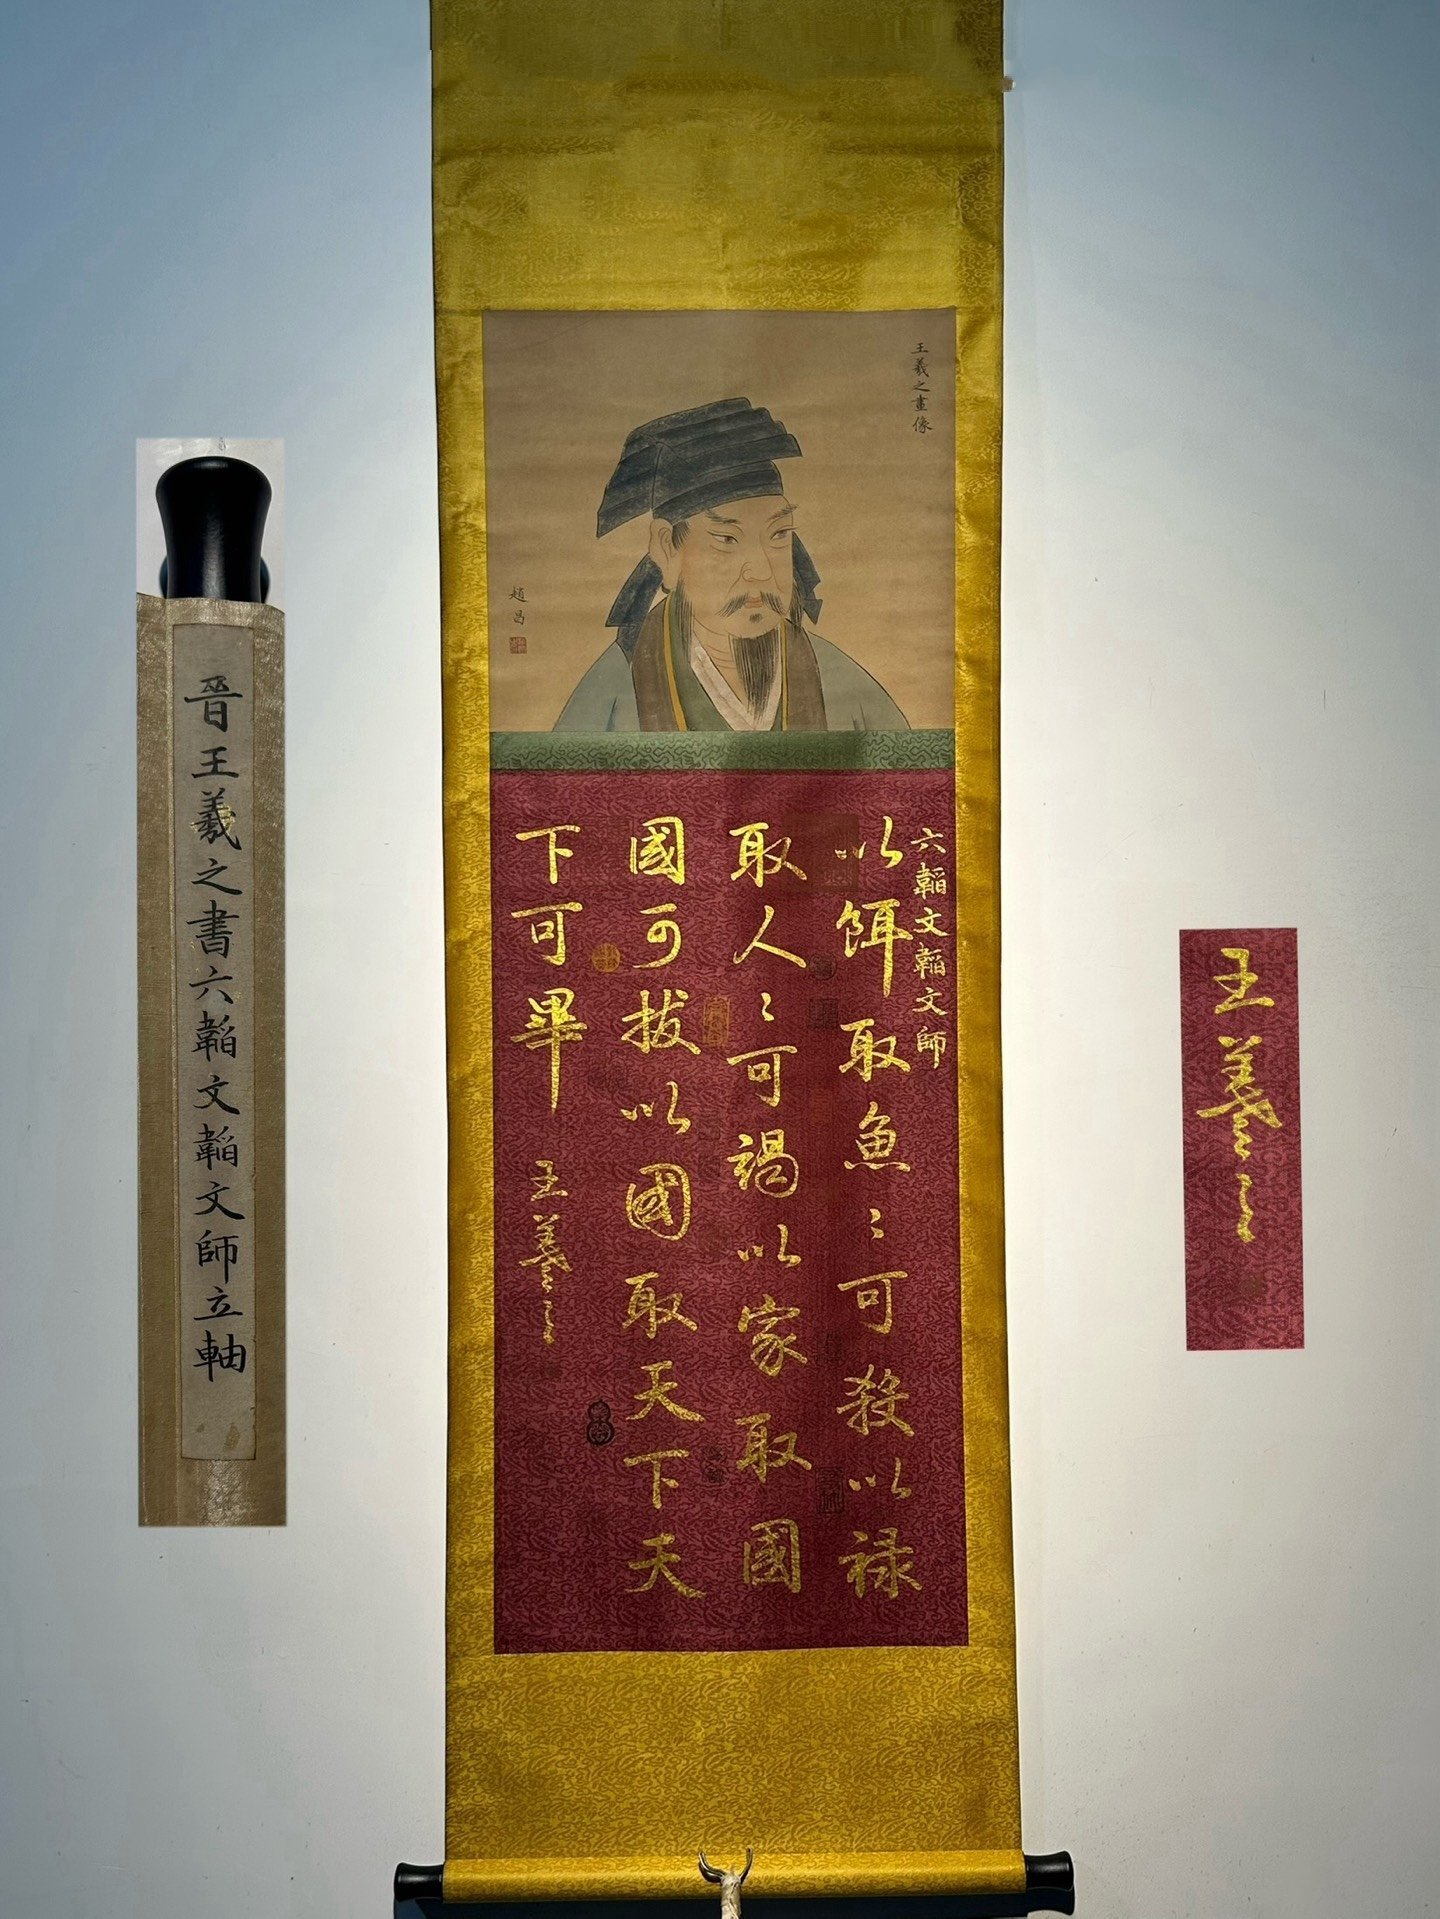 王羲之畫像
趙昌
六韜文韜文師
以餌取魚〻可殺以祿
取人〻可竭以家取國
國可拔以國取天下天
下可畢
王羲之
晉王羲之書六韜文韜文師立軸
王羲之